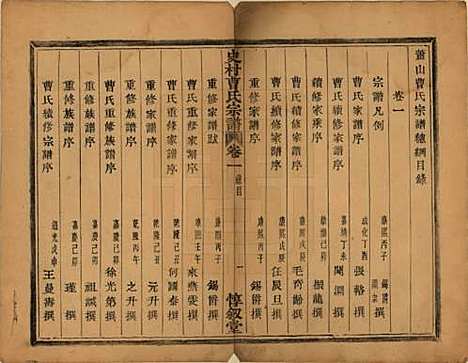 蕭山曹氏宗譜總綱目錄
卷一
宗譜凡例
康熙丙子 錫爵撰
曹氏家譜序
成化丁未 張裕撰
曹氏重修家譜序
嘉靖丁未
淵撰
續修家乘序
振龍撰
續修家譜序
康熙戊辰 毛奇齡撰
重修家譜序
康熙戊辰 任辰旦撰
重修家譜跋
康熙丙子 錫爵撰
史村曹氏宗譜
卷一
總目
一
惇敘堂
曹氏重修家譜序
來燕雯撰
曹氏重修家譜序
乾隆己丑 何國泰撰
重修家譜序
乾隆己丑 元升撰
重修族譜序
乾隆丙午 之升撰
曹氏重修族譜序
嘉慶己卯 徐光第撰
重修族譜序
嘉慶己卯 祖誠撰
重修族譜序
嘉慶己卯 瑾撰
曹氏續修宗譜序
道光戊申 王曼壽撰